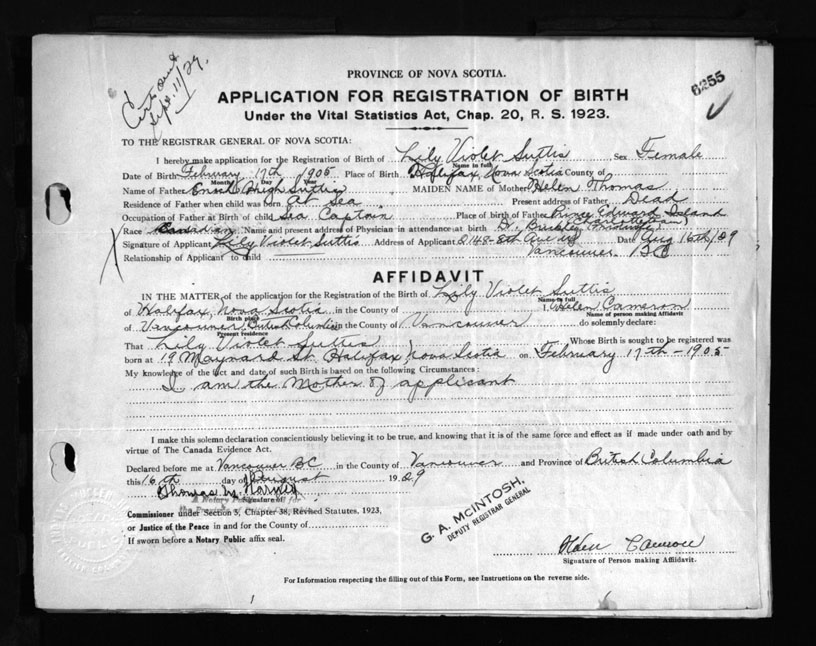 Cert out
Sept. 11/29.
PROVINCE OF NOVA SCOTIA.
6255
APPLICATION FOR REGISTRATION OF BIRTH
Under the Vital Statistics Act, Chap. 20, R. S. 1923.
TO THE REGISTRAR GENERAL OF NOVA SCOTIA:
I hereby make application for the Registration of Birth of Lily Violet Suttis Sex Female
Name in full
Date of Birth February 17th 1905 Place of Birth Halifax, Nova Scotia County of
Month Day Year
Name of Father Enos Suttis MAIDEN NAME of Mother Helen Thomas
Residence of Father when child was born At Sea Present address of Father Dead
Occupation of Father at Birth of child Sea Captain Place of birth of Father Prince Edward Island
(Charlottetown)
Race Canadian Name and present address of Physician in attendance at birth Dr.
Signature of Applicant Lily Violet Suttis Address of Applicant 2148-8th Ave W Date Aug 16th/29
Relationship of Applicant to child Vancouver BC
AFFIDAVIT
IN THE MATTER of the application for the Registration of the Birth of Lily Violet Suttis
Name in full
of Halifax, Nova Scotia in the County of I, Helen Cameron
Birth place Name of person making Affidavit
of Vancouver British Columbia in the County of Vancouver do solemnly declare:
Present residence
That Lily Violet Suttis Whose Birth is sought to be registered was
born at 19 Maynard St. Halifax, Nova Scotia on February 17th - 1905
My knowledge of the fact and date of such Birth is based on the following Circumstances:
I am the Mother of applicant
I make this solemn declaration conscientiously believing it to be true, and knowing that it is of the same force and effect as if made under oath and by
virtue of The Canada Evidence Act.
Declared before me at Vancouver BC in the County of Vancouver and Province of British Columbia
this 16th day of August 1929
Thomas M.
A Notary
Signature of
Commissioner under Section 5, Chapter 38, Revised Statutes, 1923,
or Justice of the Peace in and for the County of
If sworn before a Notary Public affix seal.
G. A. McINTOSH,
DEPUTY REGISTRAR GENERAL
Helen Cameron
Signature of Person making Affidavit.
For Information respecting the filling out of this Form, see Instructions on the reverse side.